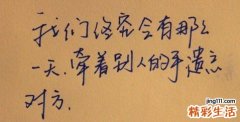 我们终究会有那么
一天,牵着别人的手遗忘
对方.
jing111.com
精彩生活